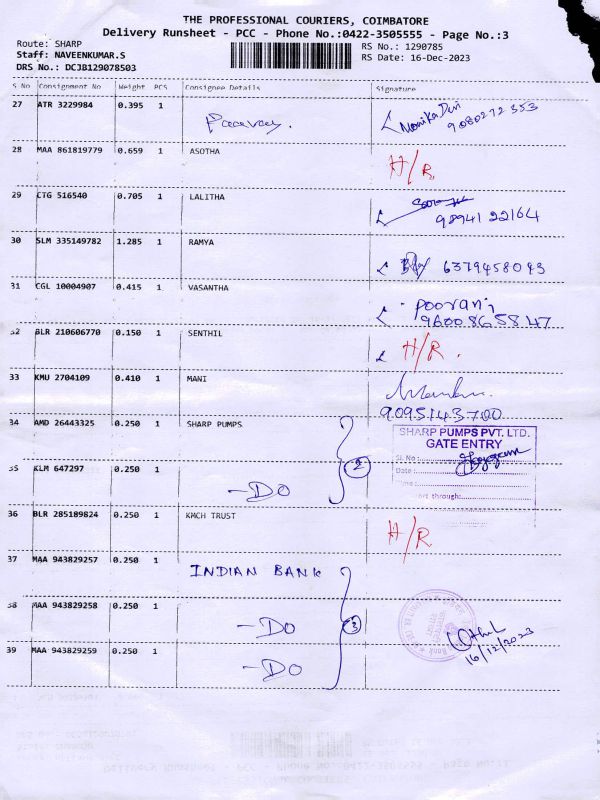 THE PROFESSIONAL COURIERS, COIMBATORE
Delivery Runsheet - PCC - Phone No.:0422-3505555 - Page No.:3
Route: SHARP
Staff: NAVEENKUMAR.S
DRS No.: DCJB129078503
RS No.: 1290785
RS Date: 16-Dec-2023
S No Consignment No Weight PCS Consignee Details Signature
27 ATR 3229984 0.395 1 Monika Devi
9080272353
28 MAA 861819779 0.659 1 ASOTHA H/R
29 CTG 516540 0.705 1 LALITHA
98941 22164
30 SLM 335149782 1.285 1 RAMYA 6379458043
31 CGL 10004907 0.415 1 VASANTHA Poorani
9600865847
32 BLR 210606770 0.150 1 SENTHIL H/R.
33 KMU 2704109 0.410 1 MANI
9095143700
34 AMD 26443325 0.250 1 SHARP PUMPS
SHARP PUMPS PVT. LTD.
GATE ENTRY
Sl. No :
Date :
35 KLM 647297 0.250 1 -DO 2
36 BLR 285189824 0.250 1 KMCH TRUST H/R
37 MAA 943829257 0.250 1 INDIAN BANK
38 MAA 943829258 0.250 1 -DO 3
16/12/2023
39 MAA 943829259 0.250 1 -DO